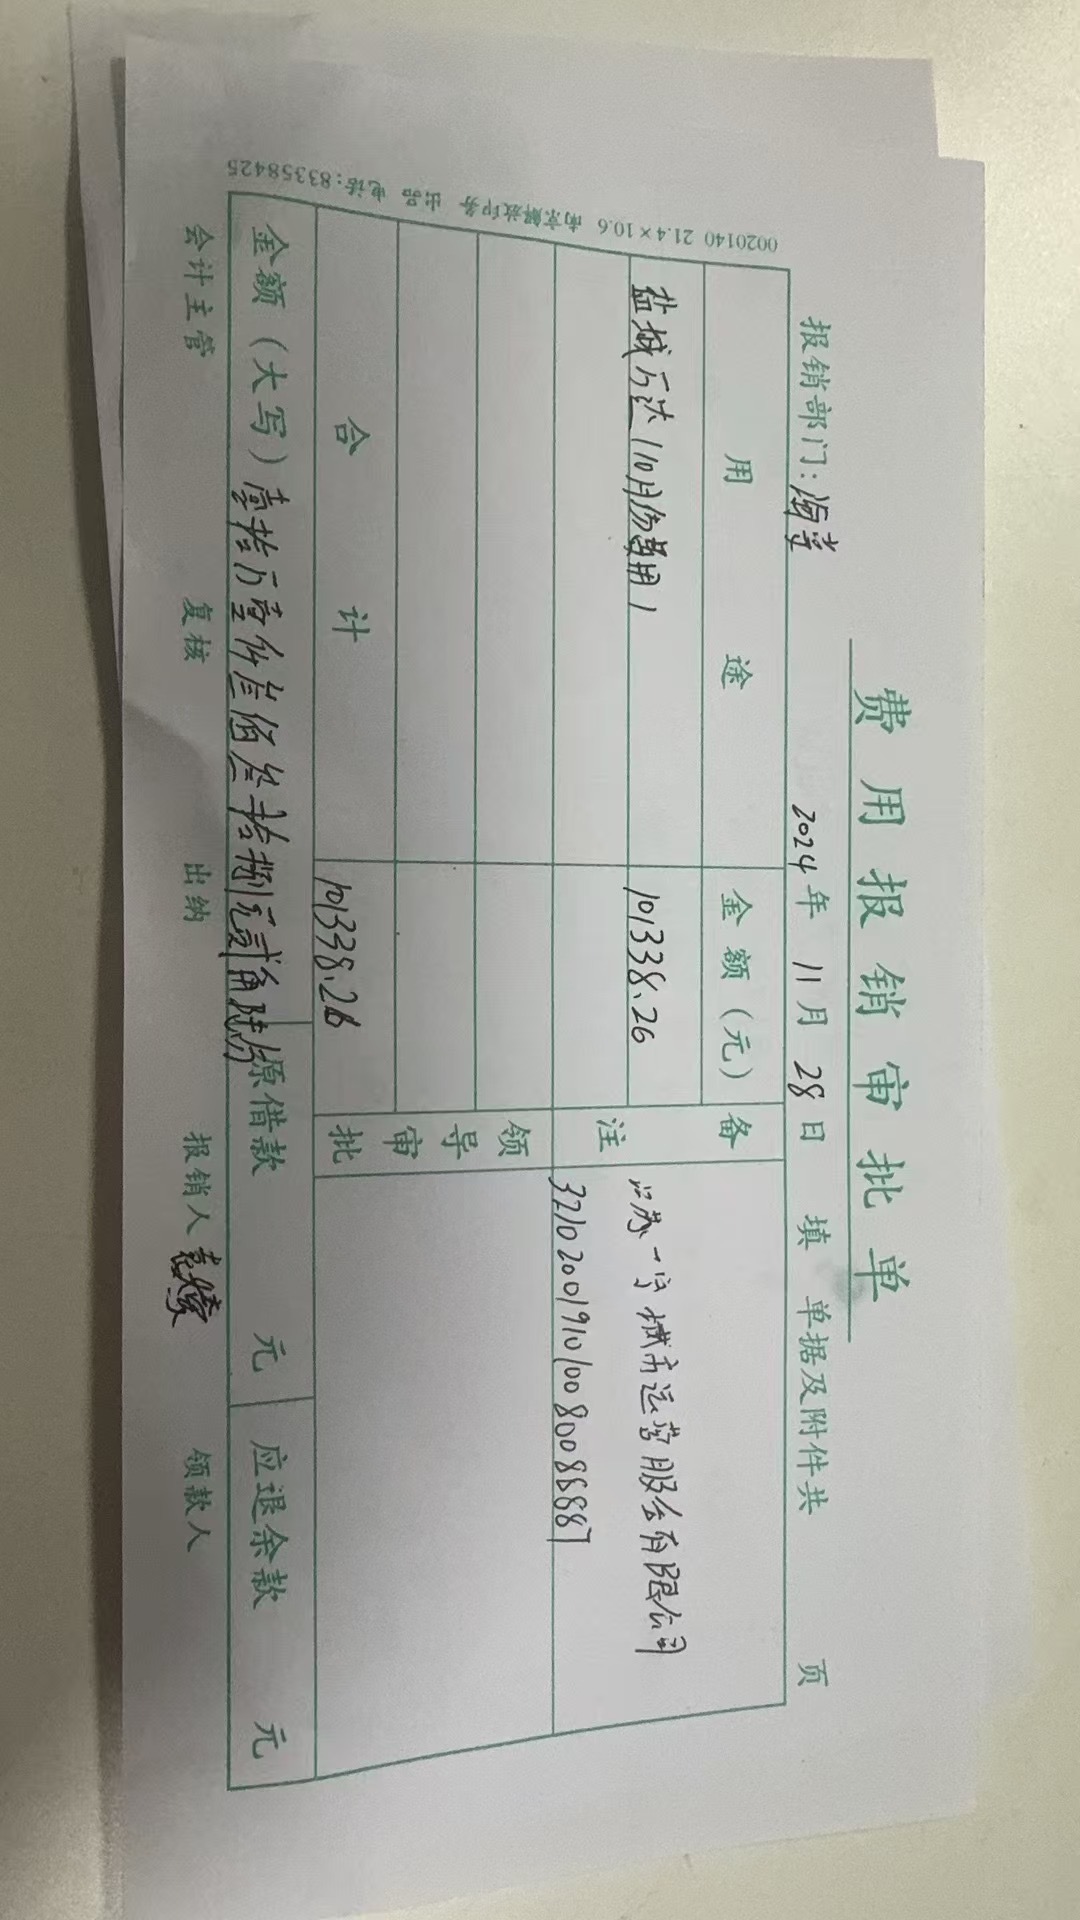 费用报销审批单
报销部门：海 2024年11月28日 填 单据及附件共 页
用途 金额（元） 备注
盐城万达（10月份费用） 101338.26
江苏一宇城市运营服务有限公司
领导审批
合计 101338.26
金额（大写）壹拾万壹仟叁佰叁拾捌元贰角陆分 原借款 元 应退余款 元
会计主管 复核 出纳 报销人 领款人
0020140 21.4×10.6 南京解放印务 出品 电话:83358425